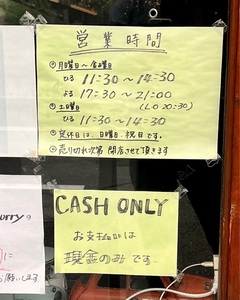 営業時間
◦月曜日〜金曜日
ひる 11:30〜14:30
よる 17:30〜21:00
◦土曜日 (L.O 20:30)
ひる 11:30〜14:30
◦定休日は、日曜日、祝日です。
◦売り切れ次第 閉店させて頂きます
CASH ONLY
お支払いは
現金のみです
urry の
に
願いします